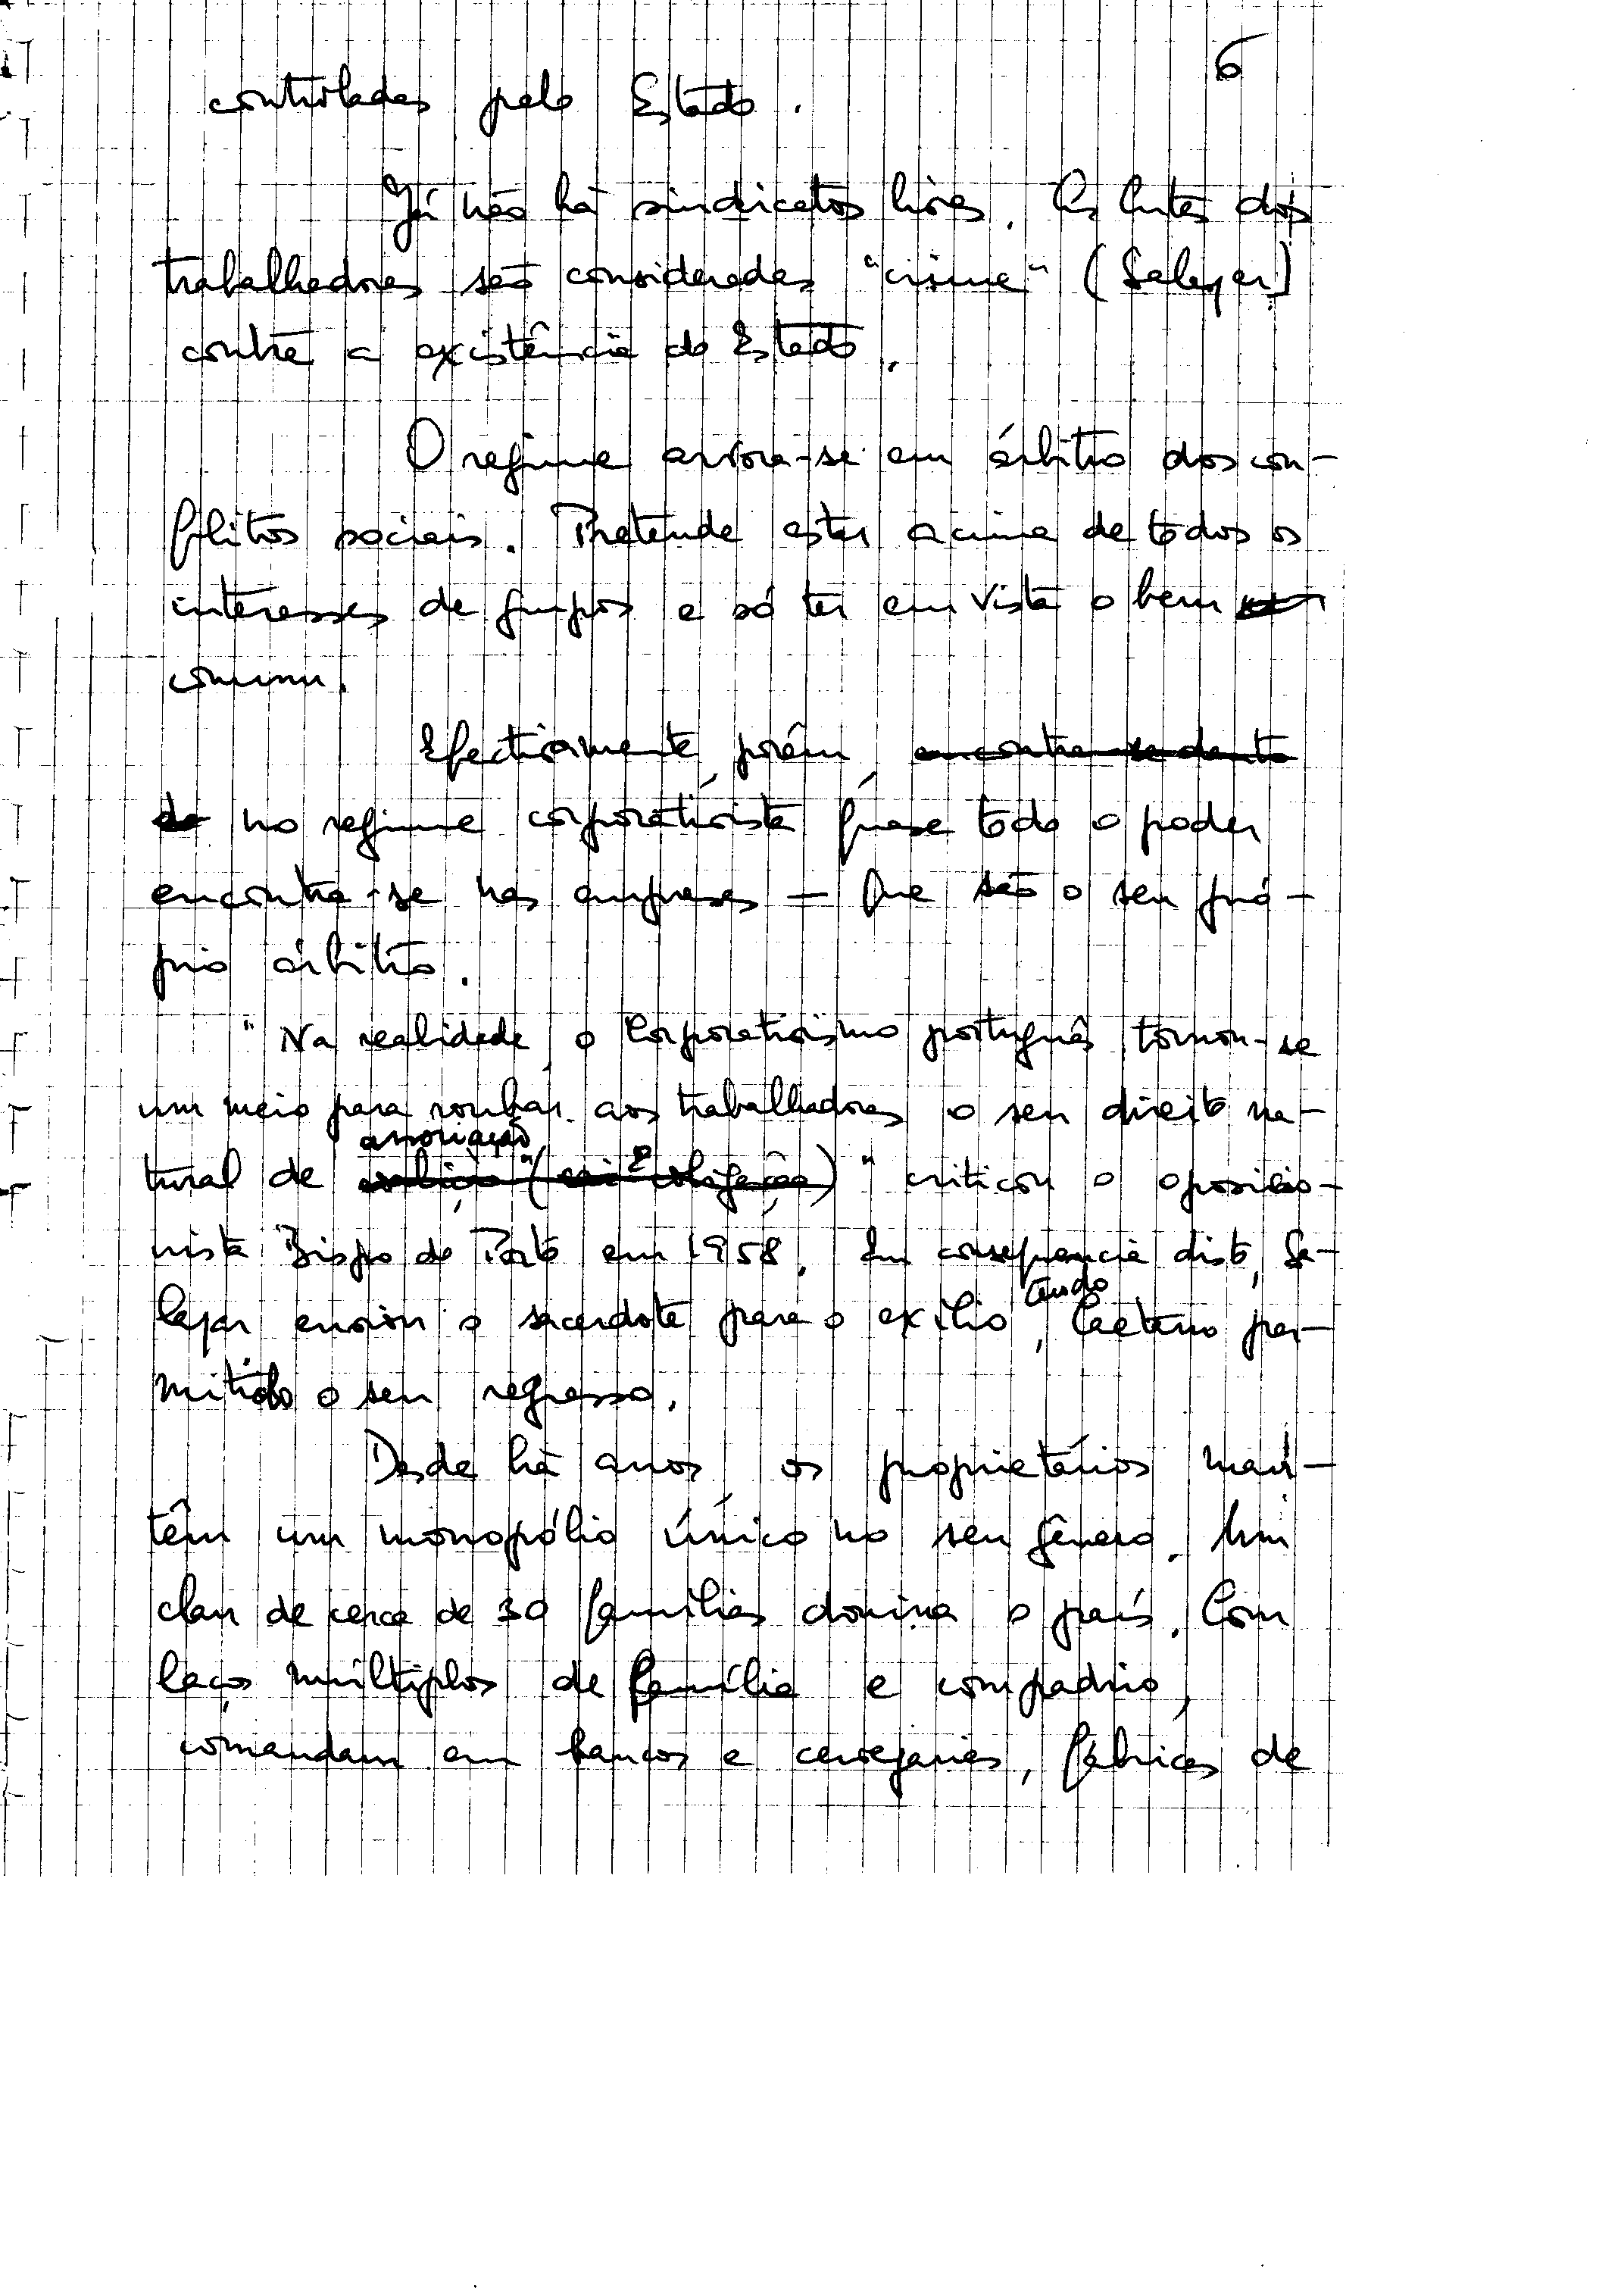 6
controladas pelo Estado.
Já não há sindicatos livres. As lutas dos
trabalhadores são consideradas "crime" (Salazar)
contra a existência do Estado.
O regime arvora-se em árbitro dos con-
flitos sociais. Pretende estar acima de todos os
interesses de grupos e só ter em vista o bem
comum.
Efectivamente, porém, encontra-se dentro
de no regime corporativista quase todo o poder
encontra-se nas empresas - que são o seu pró-
prio árbitro.
"Na realidade, o Corporativismo português tornou-se
um meio para roubar aos trabalhadores o seu direito na-
associação
tural de " criticou o oposicio-
nista Bispo do Porto em 1958. Em consequência disto, Sa-
tendo
lazar enviou o sacerdote para o exílio, Caetano per-
mitido o seu regresso.
Desde há anos, os proprietários man-
têm um monopólio único no seu género. Um
clan de cerca de 30 famílias domina o país. Com
laços múltiplos de família e compadrio,
comandam em bancos e cervejarias, fábricas de